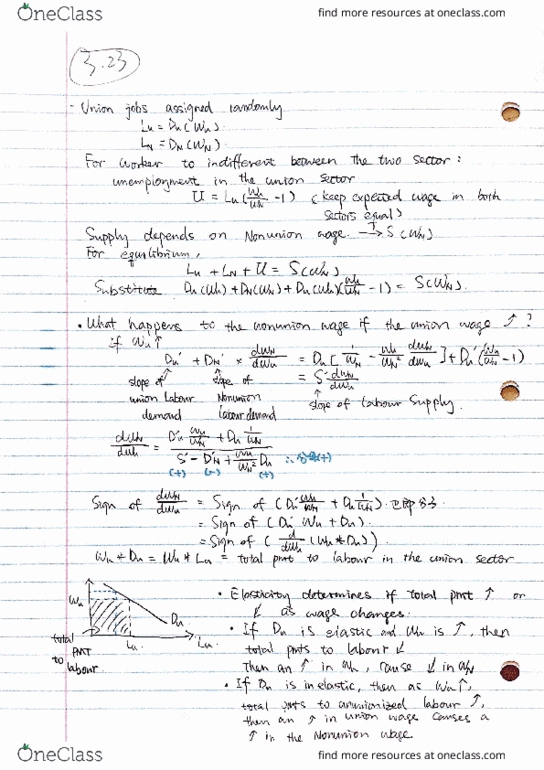 OneClass
find more resources at oneclass.com
3.23
- Union jobs assigned randomly
Lu = Du(Wu)
LN = DN(WN)
For worker to indifferent between the two sector:
unemployment in the union sector
U = Lu(Wu/WN - 1) (keep expected wage in both sectors equal)
Supply depends on Nonunion wage → S(WN)
For equilibrium,
Lu + LN + U = S(WN)
Substitute Du(Wu) + DN(WN) + Du(Wu)(Wu/WN - 1) = S(WN).
• What happens to the nonunion wage if the union wage ↑?
if Wu↑
Du' + DN' × dWN/dWu = Du[1/WN - Wu/WN² dWN/dWu] + Du'(Wu/WN - 1)
= S' dWN/dWu
slope of union labour demand
slope of Nonunion labour demand
slope of labour supply.
dWN/dWu = Du' Wu/WN + Du 1/WN / S' - DN' + Wu/WN² Du
(+) (-) (+)
Sign of dWN/dWu = Sign of (Du' Wu/WN + Du 1/WN)
= Sign of (Du' Wu + Du)
= Sign of (d/dWu (Wu * Du))
Wu * Du = Wu * Lu = total pmt to labour in the union sector
Wu
Du
Lu
Lu
total PMT to labour.
• Elasticity determines if total pmt ↑ or
↓ as wage changes.
• If Du is elastic and Wu is ↑, then
total pmts to labour ↓
Then an ↑ in Wu, cause ↓ in WN
• If Du is inelastic, then as Wu↑,
total pmts to unionized labour ↑,
then an ↑ in union wage causes a
↑ in the Nonunion wage.
OneClass
find more resources at oneclass.com